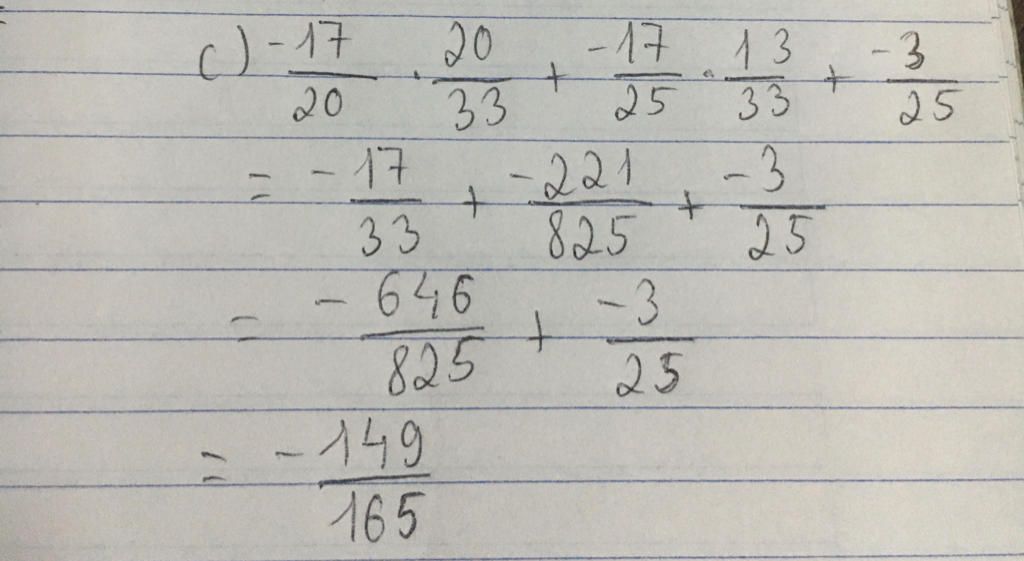 c) -17/20 . 20/33 + -17/25 . 13/33 + -3/25
= -17/33 + -221/825 + -3/25
= -646/825 + -3/25
= -149/165